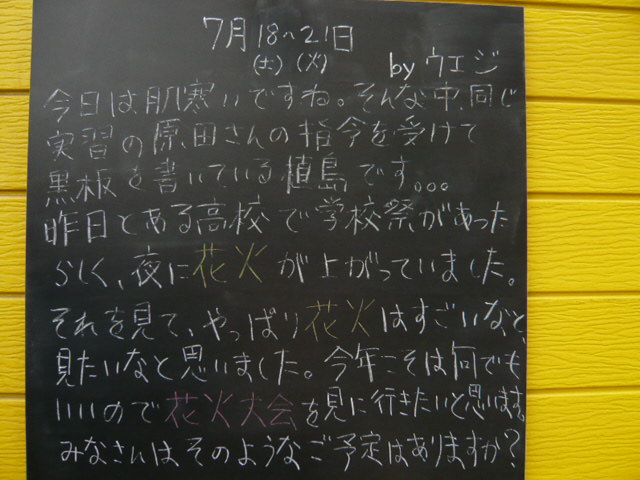 7月18〜21日
(土)(火)
by ウエジ
今日は肌寒いですね。そんな中、同じ
実習の原田さんの指令を受けて
黒板を書いている植島です。。。
昨日とある高校で学校祭があった
らしく、夜に花火が上がっていました。
それを見て、やっぱり花火はすごいなと、
見たいなと思いました。今年こそは何でも
いいので花火大会を見に行きたいと思います。
みなさんはそのようなご予定はありますか?